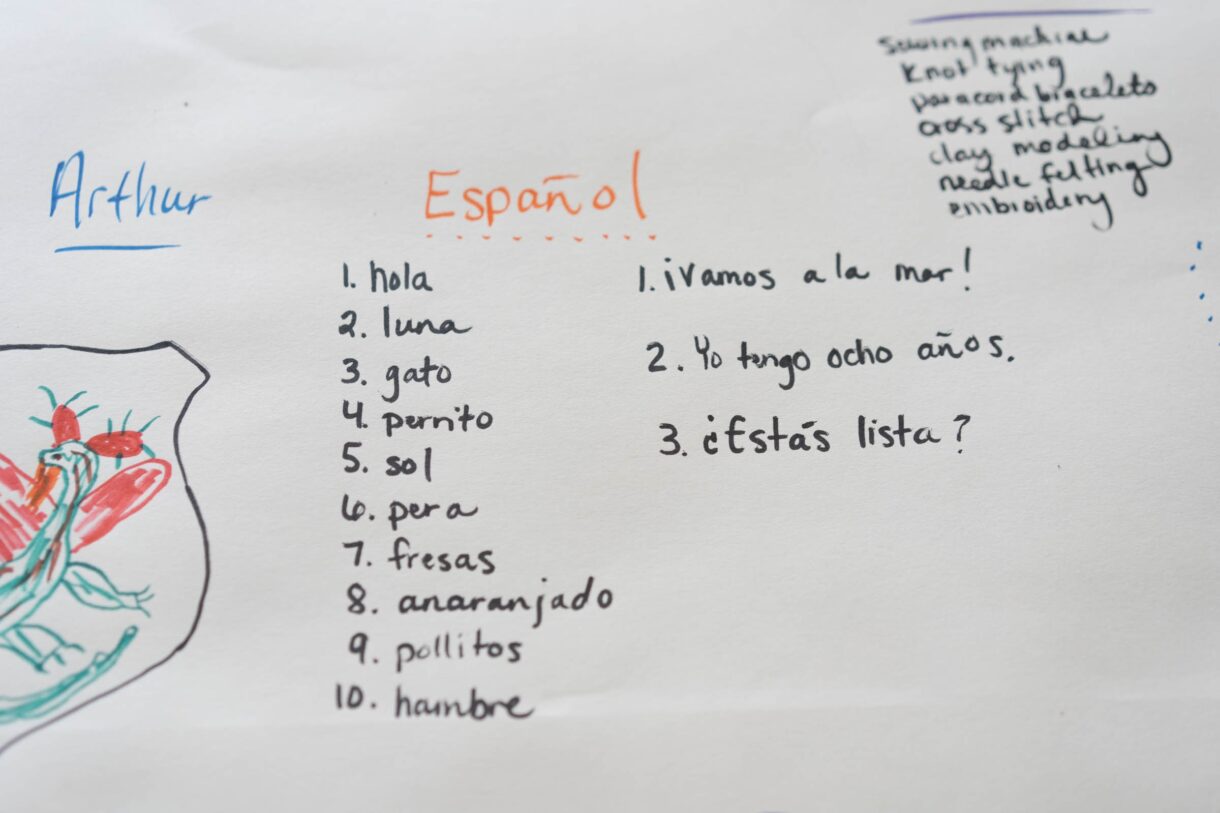 sewing machine
Knot tying
paracord bracelets
cross stitch
clay modeling
needle felting
embroidery
Arthur
Español
1. hola
2. luna
3. gato
4. perrito
5. sol
6. pera
7. fresas
8. anaranjado
9. pollitos
10. hambre
1. ¡Vamos a la mar!
2. Yo tengo ocho años.
3. ¿Estás lista?